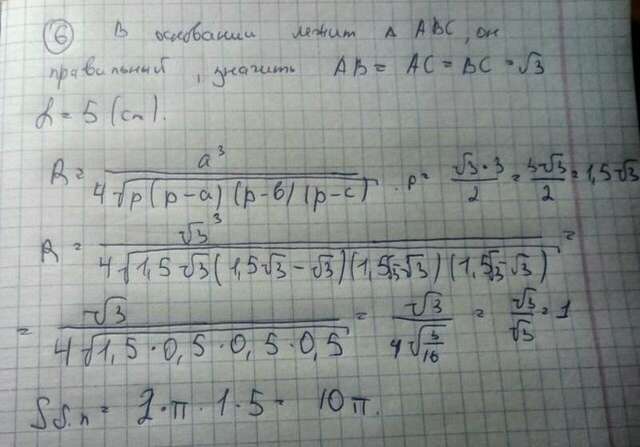 6 В основании лежит Δ ABC, он
правильный, значить AB = AC = BC = √3
L = 5 (см).
R = a³ / 4√p(p-a)(p-b)(p-c) . p = √3·3 / 2 = 3√3 / 2 = 1,5√3
R = √3³ / 4√1,5√3(1,5√3-√3)(1,5√3-√3)(1,5√3-√3) =
= √3 / 4√1,5·0,5·0,5·0,5 = √3 / 4√3/16 = √3/√3 = 1
Sб.п = 2·π·1·5 = 10π.